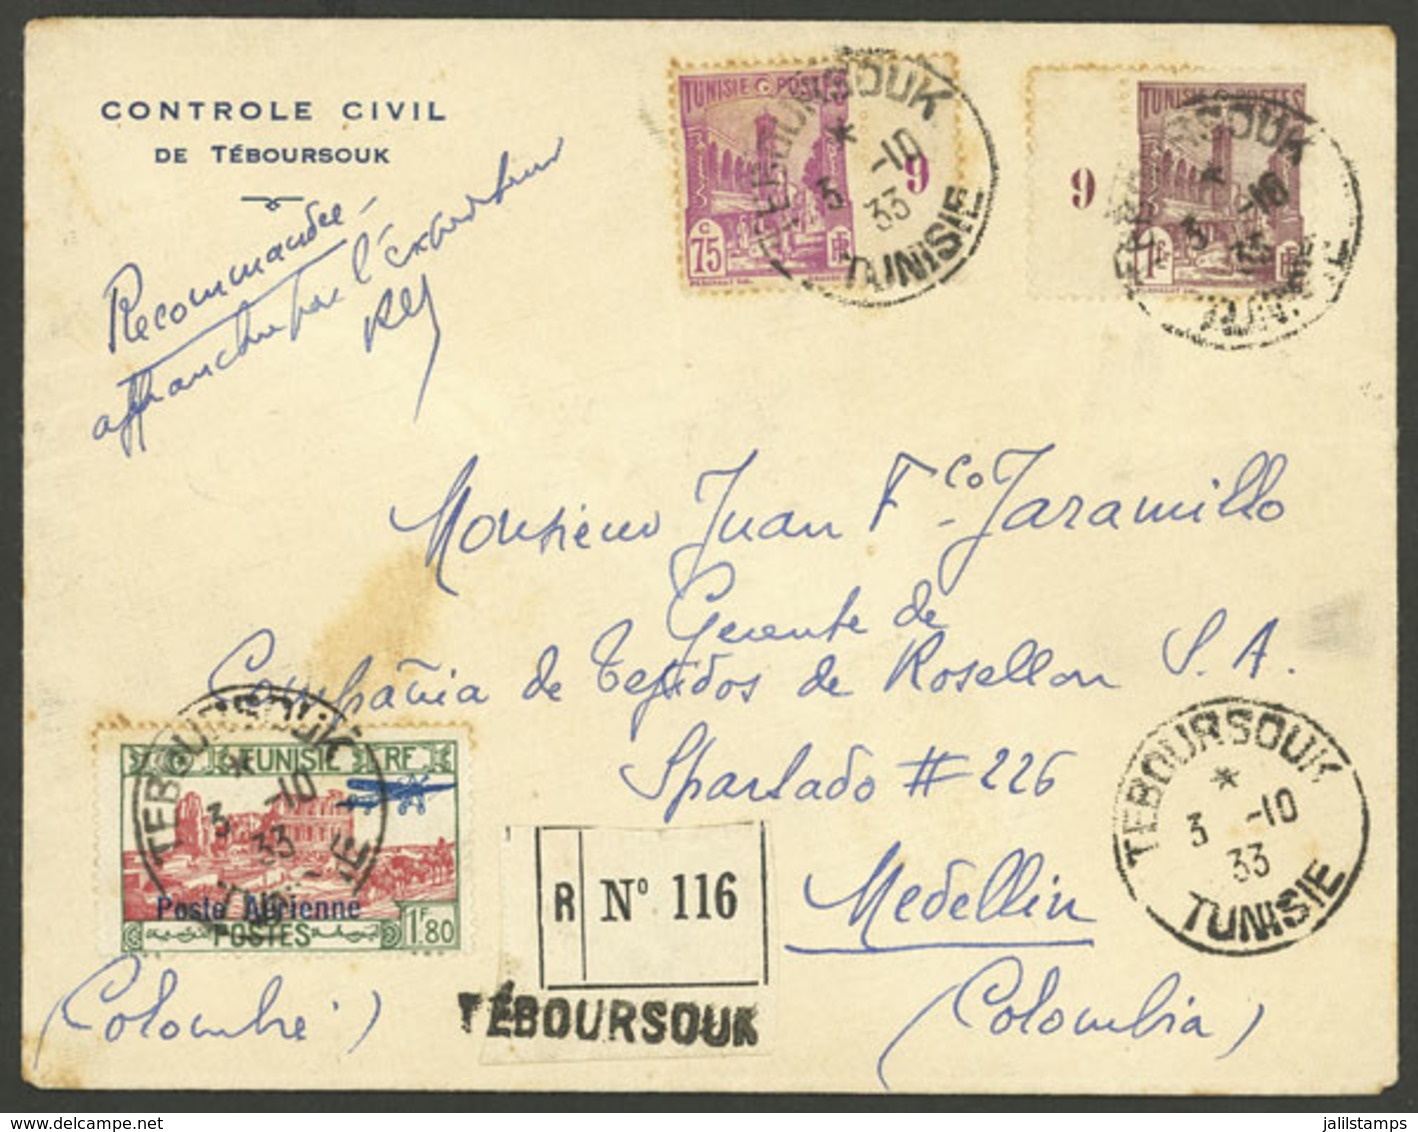 CONTROLE CIVIL
DE TÉBOURSOUK
Recommandée
affranchie par l'expéditeur
TUNISIE POSTES
75 c
RF
9
TEBOURSOUK
* 3 -10
33
TUNISIE
9
TUNISIE POSTES
1F
RF
TEBOURSOUK
* 3 -10
33
TUNISIE
Monsieur Juan F^co. Jaramillo
Gerente de
Compañia de Tejidos de Rosellon S. A.
Apartado # 226
Medellin
(Colombia)
TUNISIE RF
Poste Aérienne
POSTES 1F80
TEBOURSOUK
* 3 -10
33
R N° 116
TÉBOURSOUK
(Colombie)
TEBOURSOUK
* 3 -10
33
TUNISIE
jalilstamps